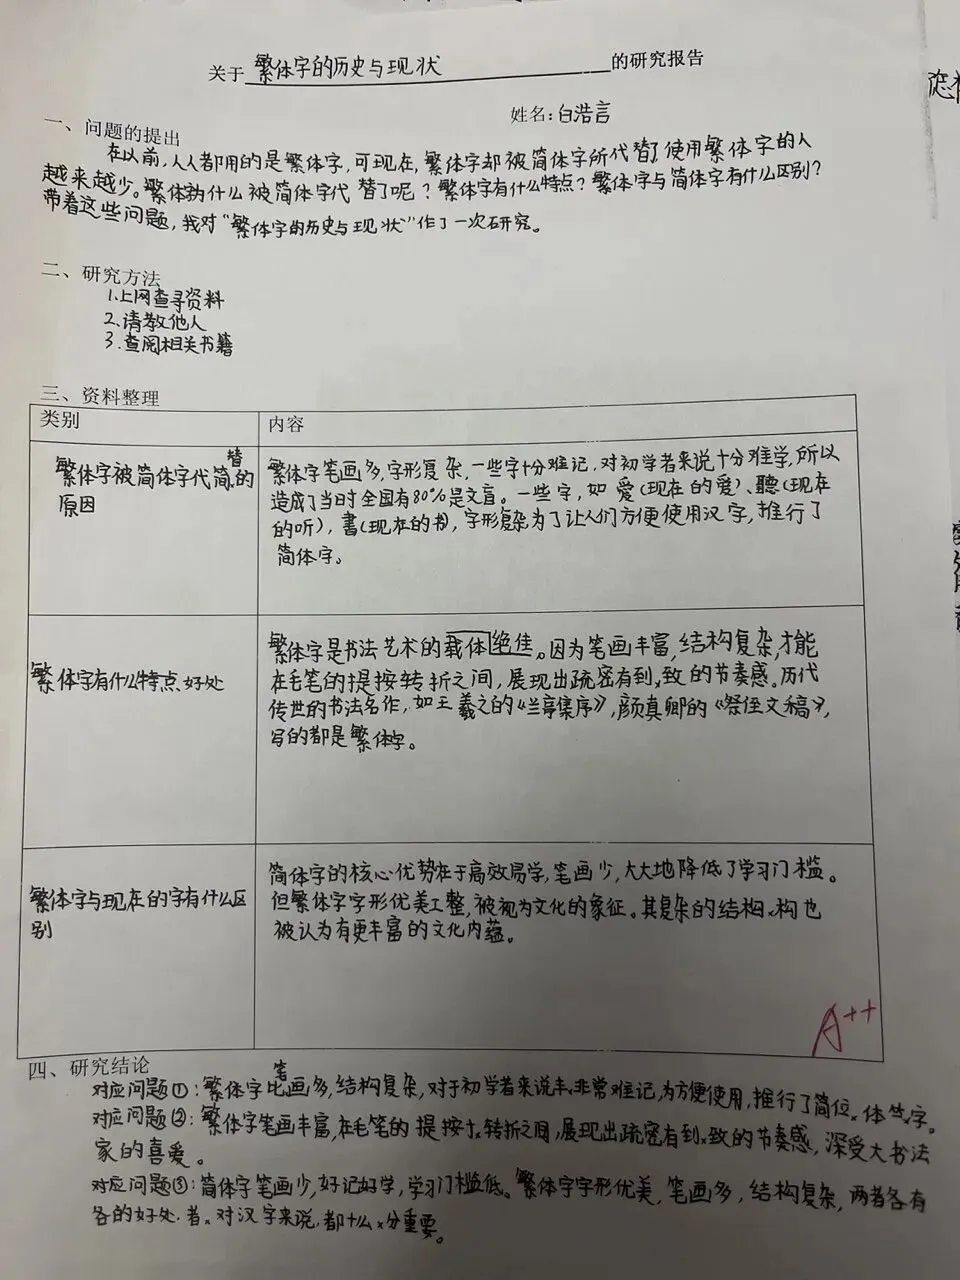 关于 繁体字的历史与现状 的研究报告
姓名：白浩言
一、问题的提出
在以前，人人都用的是繁体字，可现在，繁体字却被简体字所代替了，使用繁体字的人
越来越少。繁体字为什么被简体字代替了呢？繁体字有什么特点？繁体字与简体字有什么区别？
带着这些问题，我对“繁体字的历史与现状”作了一次研究。
二、研究方法
1.上网查寻资料
2.请教他人
3.查阅相关书籍
三、资料整理
类别
内容
繁体字被简体字代替简的
原因
繁体字笔画多，字形复杂，一些字十分难记，对初学者来说十分难学，所以
造成了当时全国有80%是文盲。一些字，如 爱（现在的爱）、聽（现在
的听），書（现在的书），字形复杂，为了让人们方便使用汉字，推行了
简体字。
繁体字有什么特点、好处
繁体字是书法艺术的载体绝佳。因为笔画丰富，结构复杂，才能
在毛笔的提按转折之间，展现出疏密有到致的节奏感。历代
传世的书法名作，如王羲之的《兰亭集序》，颜真卿的《祭侄文稿》，
写的都是繁体字。
繁体字与现在的字有什么区
别
简体字的核心优势在于高效易学，笔画少，大大地降低了学习门槛。
但繁体字字形优美工整，被视为文化的象征。其复杂的结构构也
被认为有更丰富的文化内蕴。
A++
四、研究结论
对应问题①：繁体字比笔画多，结构复杂，对于初学者来说非常难记，为方便使用，推行了简体字。
对应问题②：繁体字笔画丰富，在毛笔的提按转折之间，展现出疏密有到致的节奏感，深受大书法
家的喜爱。
对应问题③：简体字笔画少，好记好学，学习门槛低。繁体字字形优美，笔画多，结构复杂，两者各有
各的好处，对汉字来说，都十分重要。